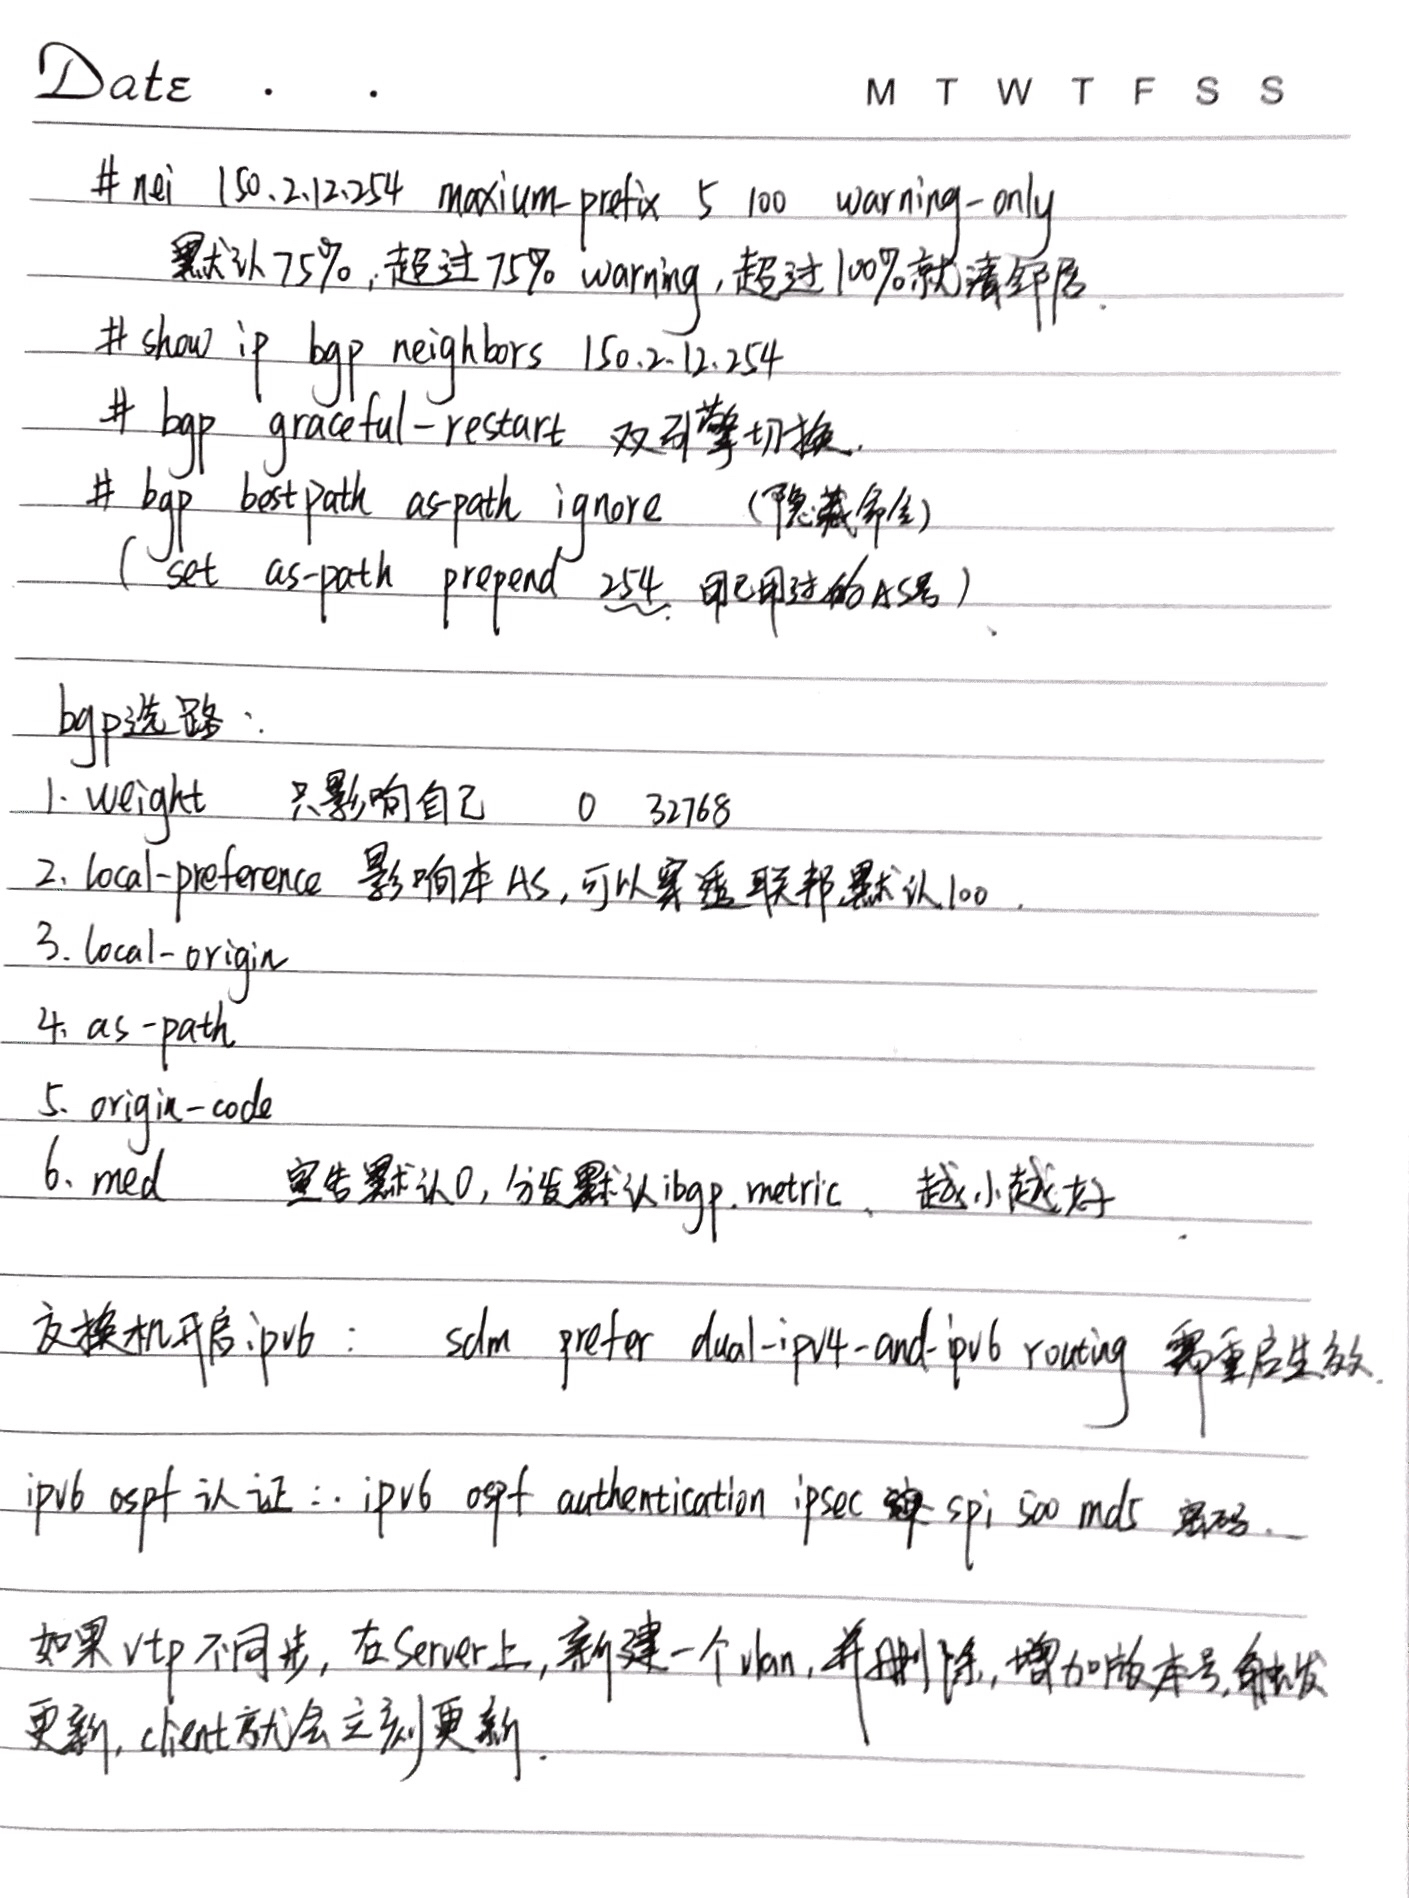 Date . .
M T W T F S S
# nei 150.2.12.254 maxium-prefix 5 100 warning-only
默认75%,超过75% warning,超过100%就清邻居.
# show ip bgp neighbors 150.2.12.254
# bgp graceful-restart 双引擎切换.
# bgp bestpath as-path ignore (隐藏命令)
( set as-path prepend 254 自己用过的AS号)
bgp选路:
1. weight 只影响自己 0 32768
2. local-preference 影响本AS,可以穿透联邦,默认100.
3. local-origin
4. as-path
5. origin-code
6. med 宣告默认0,分发默认ibgp.metric、越小越好
交换机开启ipv6: sdm prefer dual-ipv4-and-ipv6 routing 需重启生效.
ipv6 ospf 认证:. ipv6 ospf authentication ipsec spi 500 md5 密码.
如果vtp不同步,在Server上,新建一个vlan,并删除,增加版本号,触发
更新,client就会立刻更新.